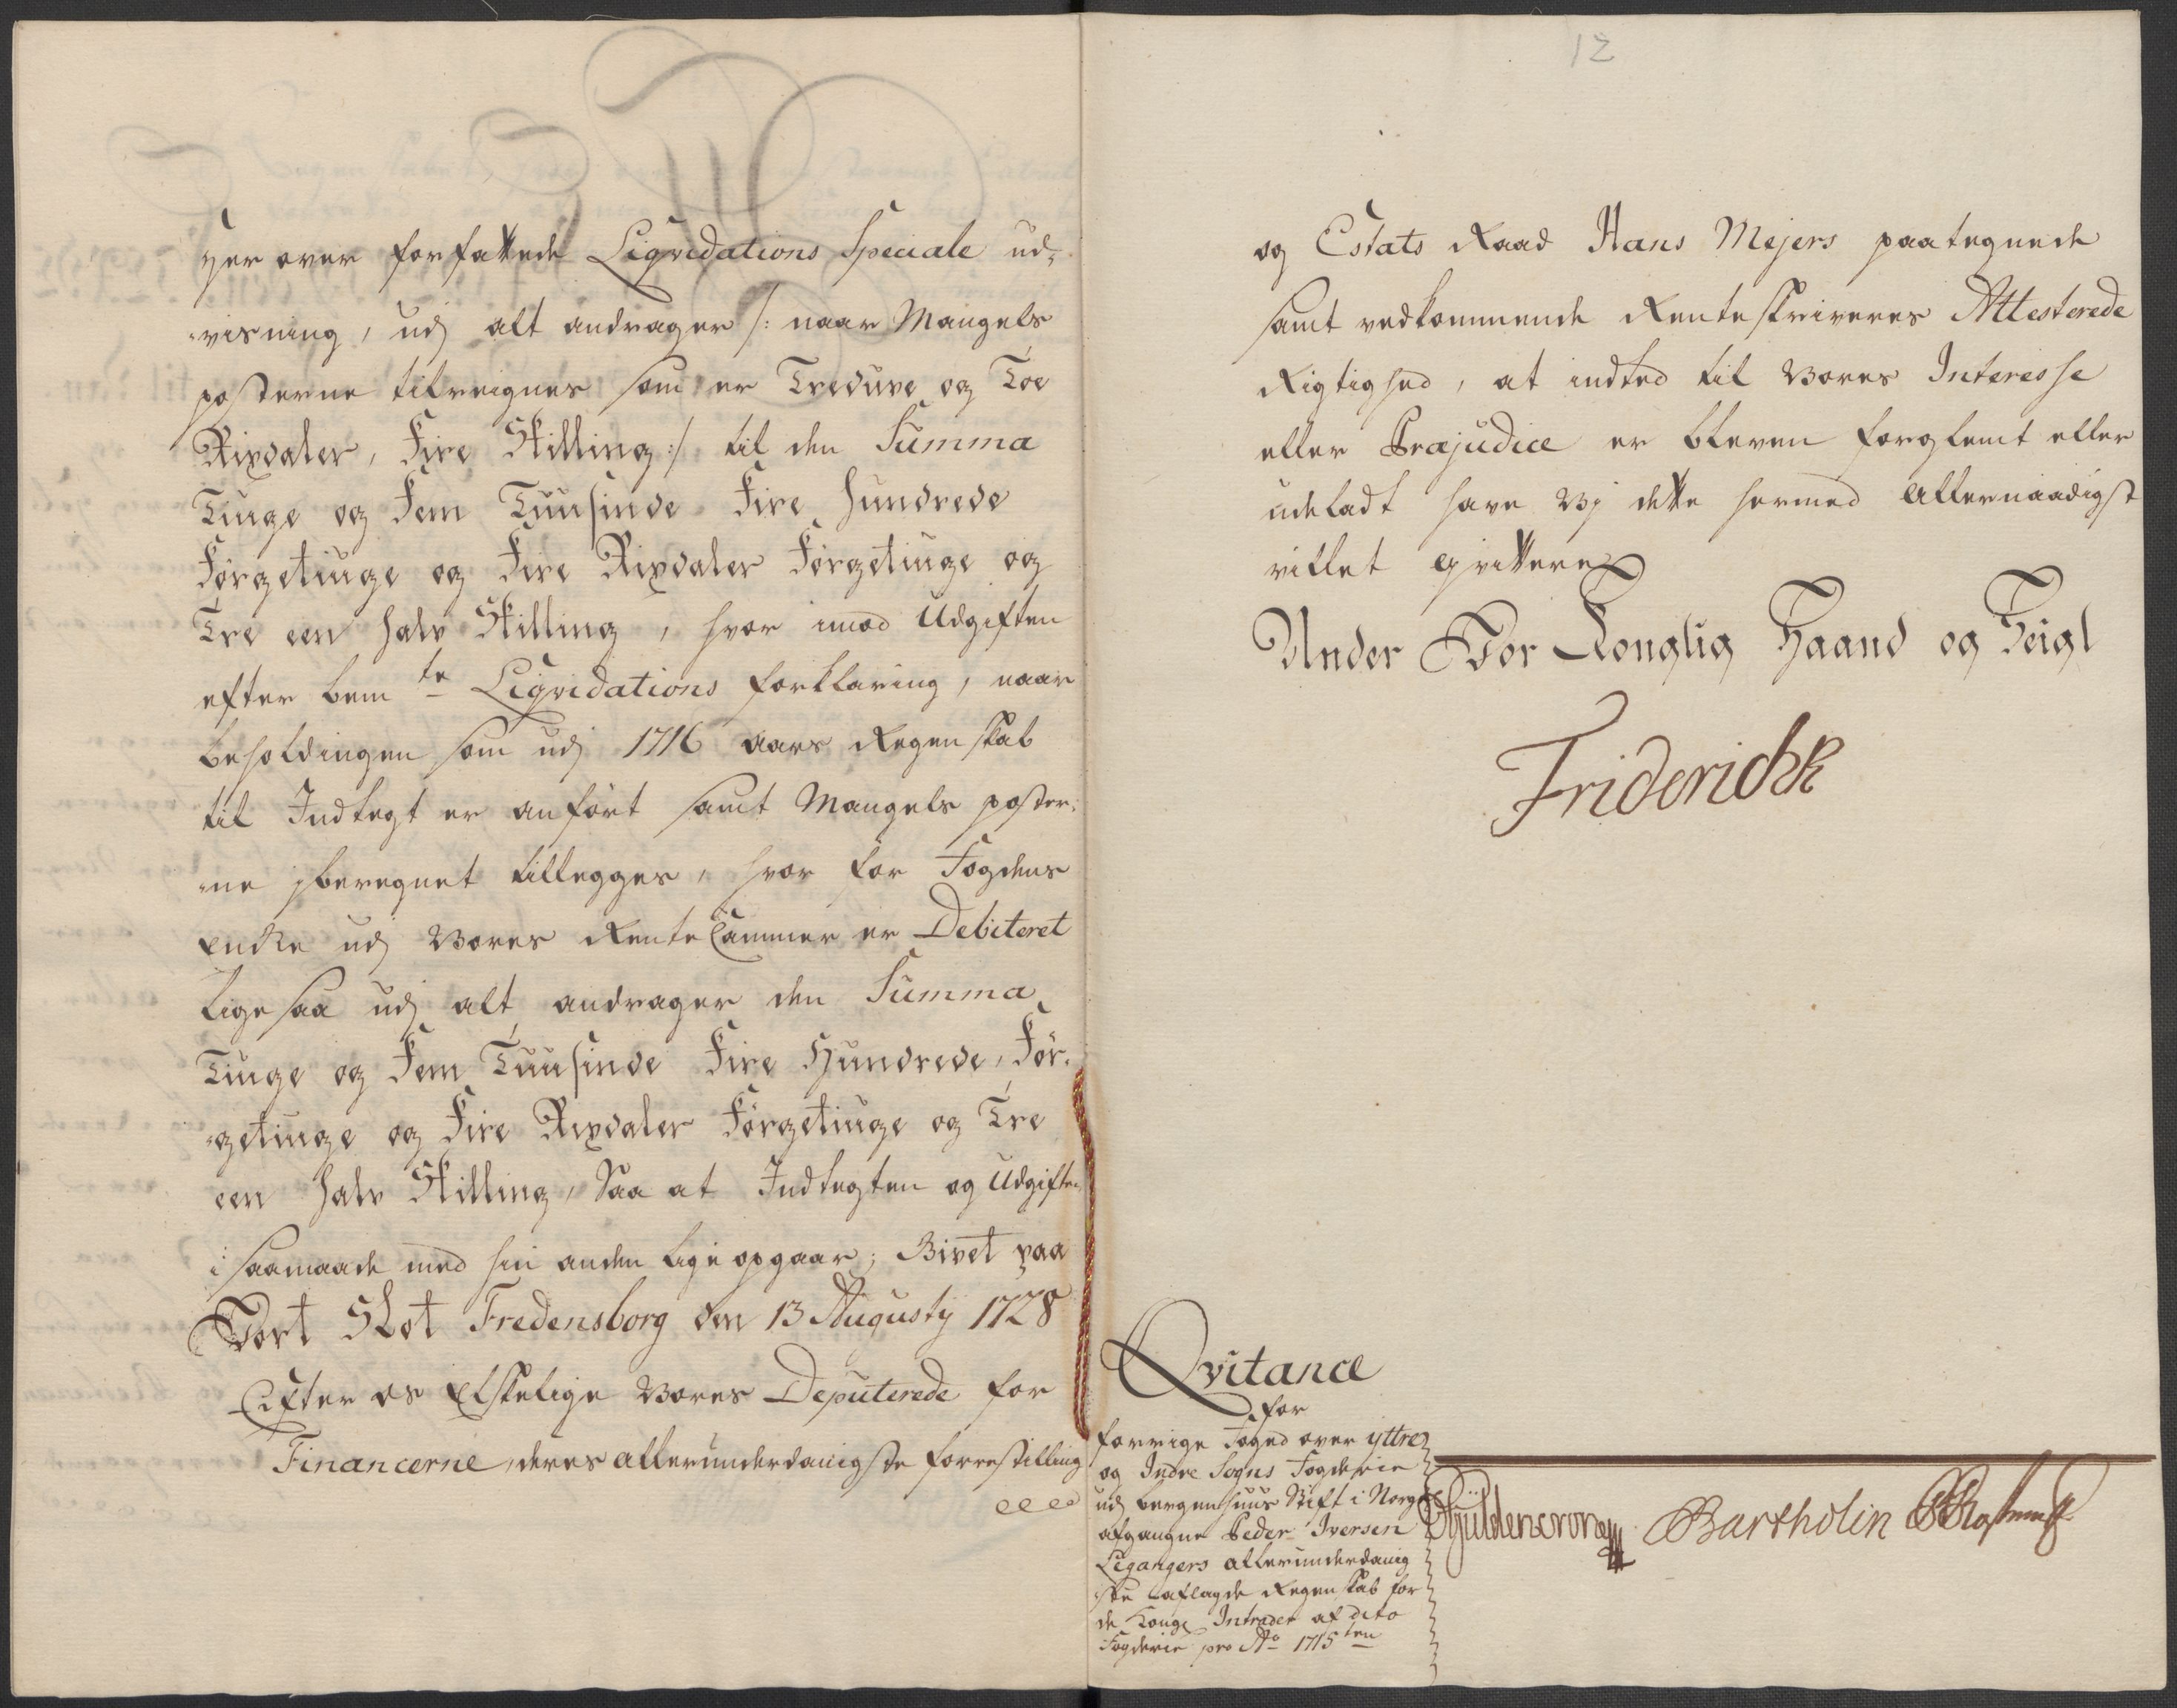 her over forfattede Liqvidations Speciale ud-
visning, udj alt andrager /: naar Mangels
posterne tilreignes som er Tredůve og Toe
Rixdaler, Fire Skilling :/ til den Summa
Tiuge og Fem Tuusinde Fire Hundrede
Førgetiuge og Fire Rixdaler Førgetiuge og
Tre een halv Skilling, hvor imod Udgiften
efter bemte Liqvidations forklaring, naar
beholdingen som udj 1716 aars Regenskab
til Indtegt er anført samt Mangels poster-
ne jberegnet tillegges, hvor for Fogdens
Encke udj Vores Rente Cammer er Debiteret
lige saa udj alt andrager den Summa
Tiuge og Fem Tuusinde Fire Hundrede, Før-
getiuge og Fire Rixdaler Førgetiuge og Tre
een halv Skilling, Saa at Indtegten og Udgiften
i saamaade med hin anden lige opgaar; Givet paa
Vort Slot Fredensborg den 13 Augustij 1728
Efter os Elskelige Vores Deputerede for
Financerne, deres allerunderdanigste forrestilling
12
og Estats Raad Hans Mejers paategnede
samt vedkommende Renteskriveres Attesterede
Rigtighed, at indted til Vores Interesse
eller Præjudice er bleven forglemt eller
udeladt have Vj dette hermed allernaadigst
villet qvittere
Under Vor Konglig Haand og Seigl
Friderich R
Qvitance
for
forrige Foged over yttre
og Indre Sogns Fogderie
udj Bergenhuus Stift i Norge
afgangne Peder Iversen
Legangers allerunderdanig
ste aflagde Regenskab for
de Kongl Intrader af dito
Fogderie pro Ao 1715ten
Güldencrone Bartholin